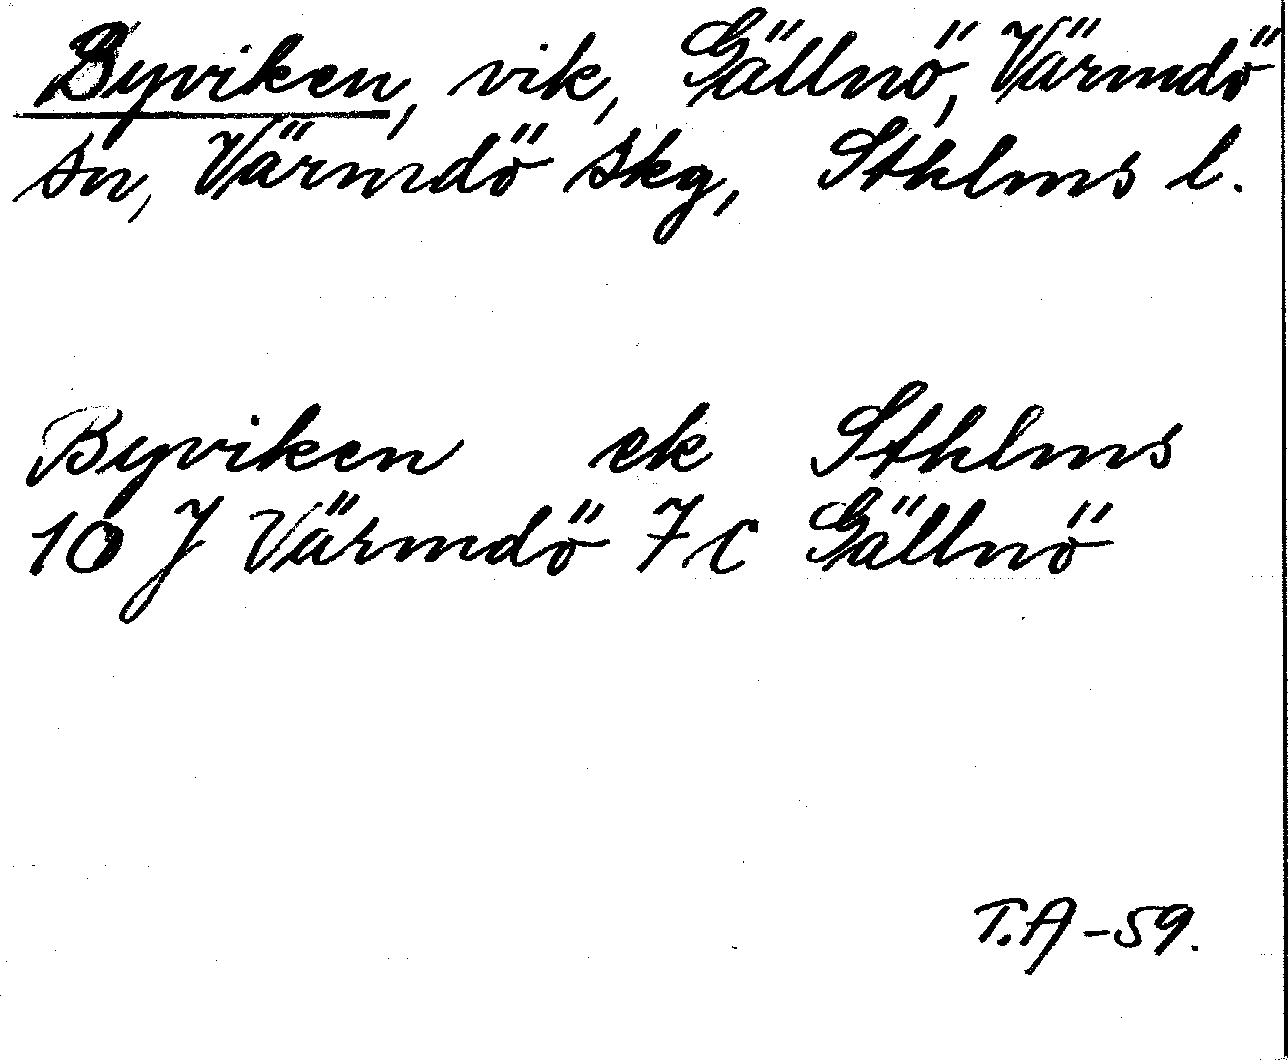 Byviken, vik, Gällnö, Värmdö
sn, Värmdö skg, Sthlms l.
Byviken ek Sthlms
10 J Värmdö 7 C Gällnö
T.A -59.